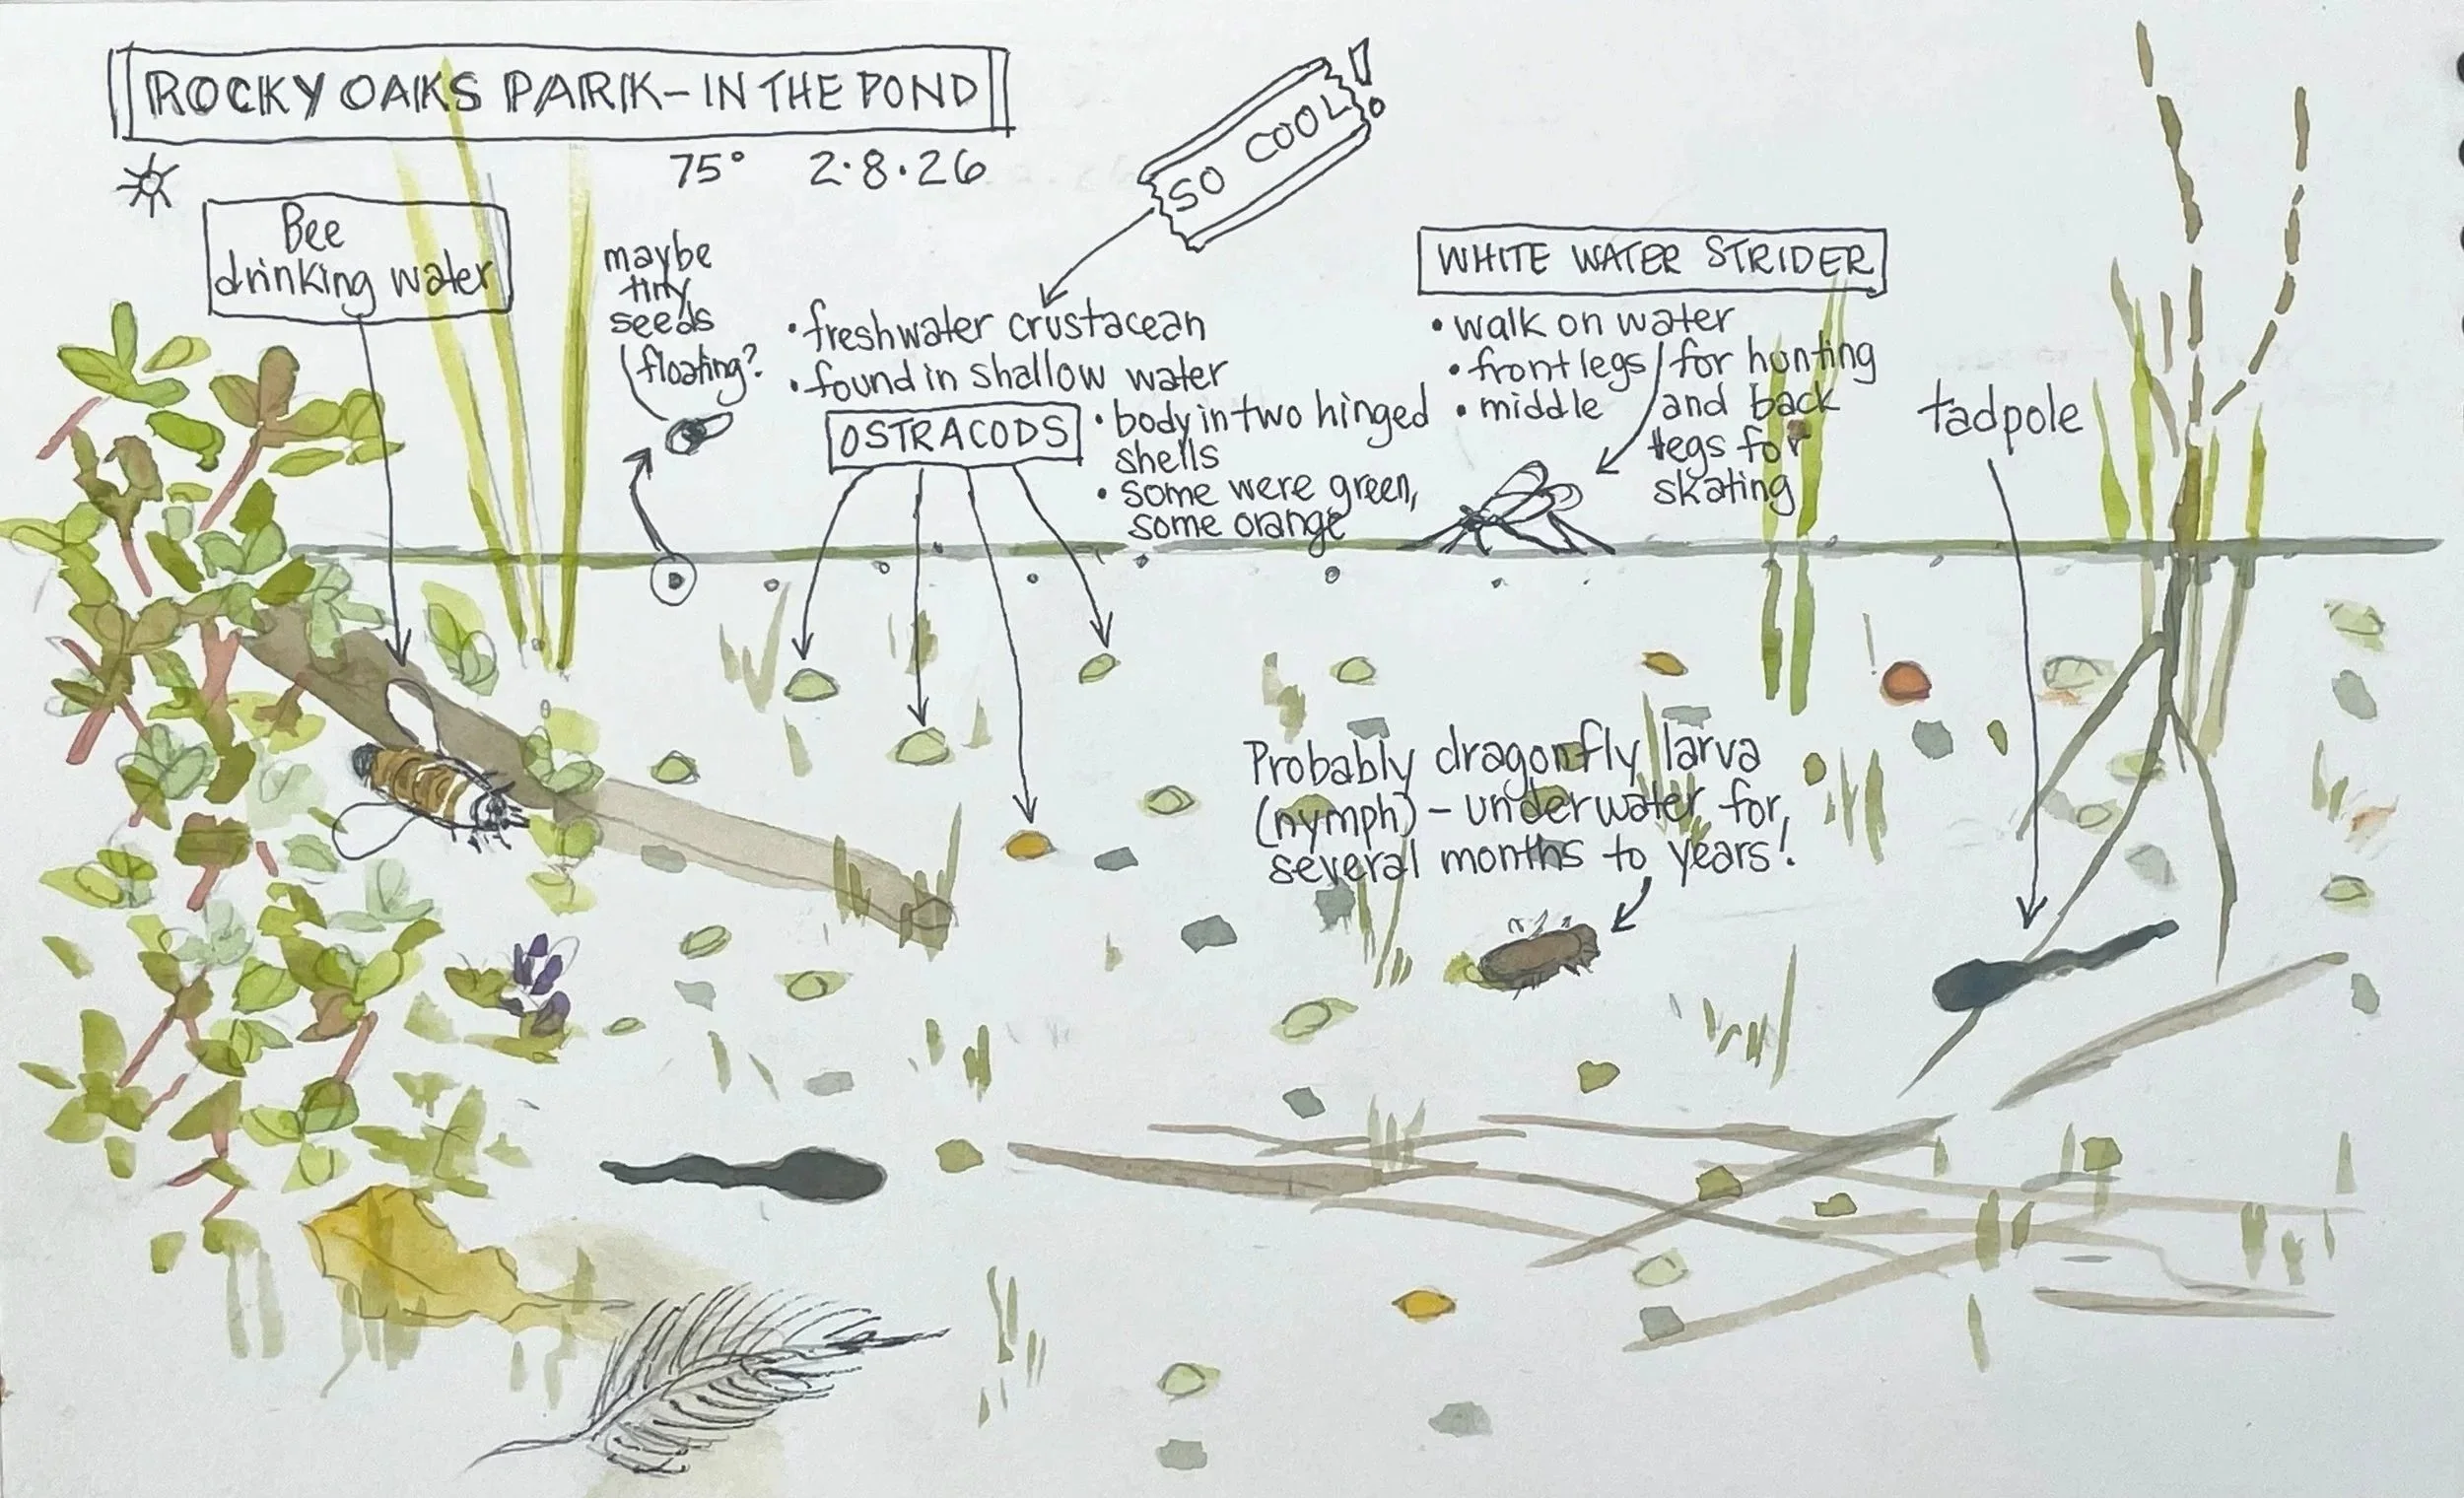 ROCKY OAKS PARK - IN THE POND
75° 2.8.26
SO COOL!
Bee
drinking water
maybe
tiny
seeds
floating?
• freshwater crustacean
• found in shallow water
OSTRACODS
• body in two hinged
shells
• some were green,
some orange
WHITE WATER STRIDER
• walk on water
• front legs for hunting
• middle and back
legs for
skating
tadpole
Probably dragonfly larva
(nymph) - underwater for
several months to years!